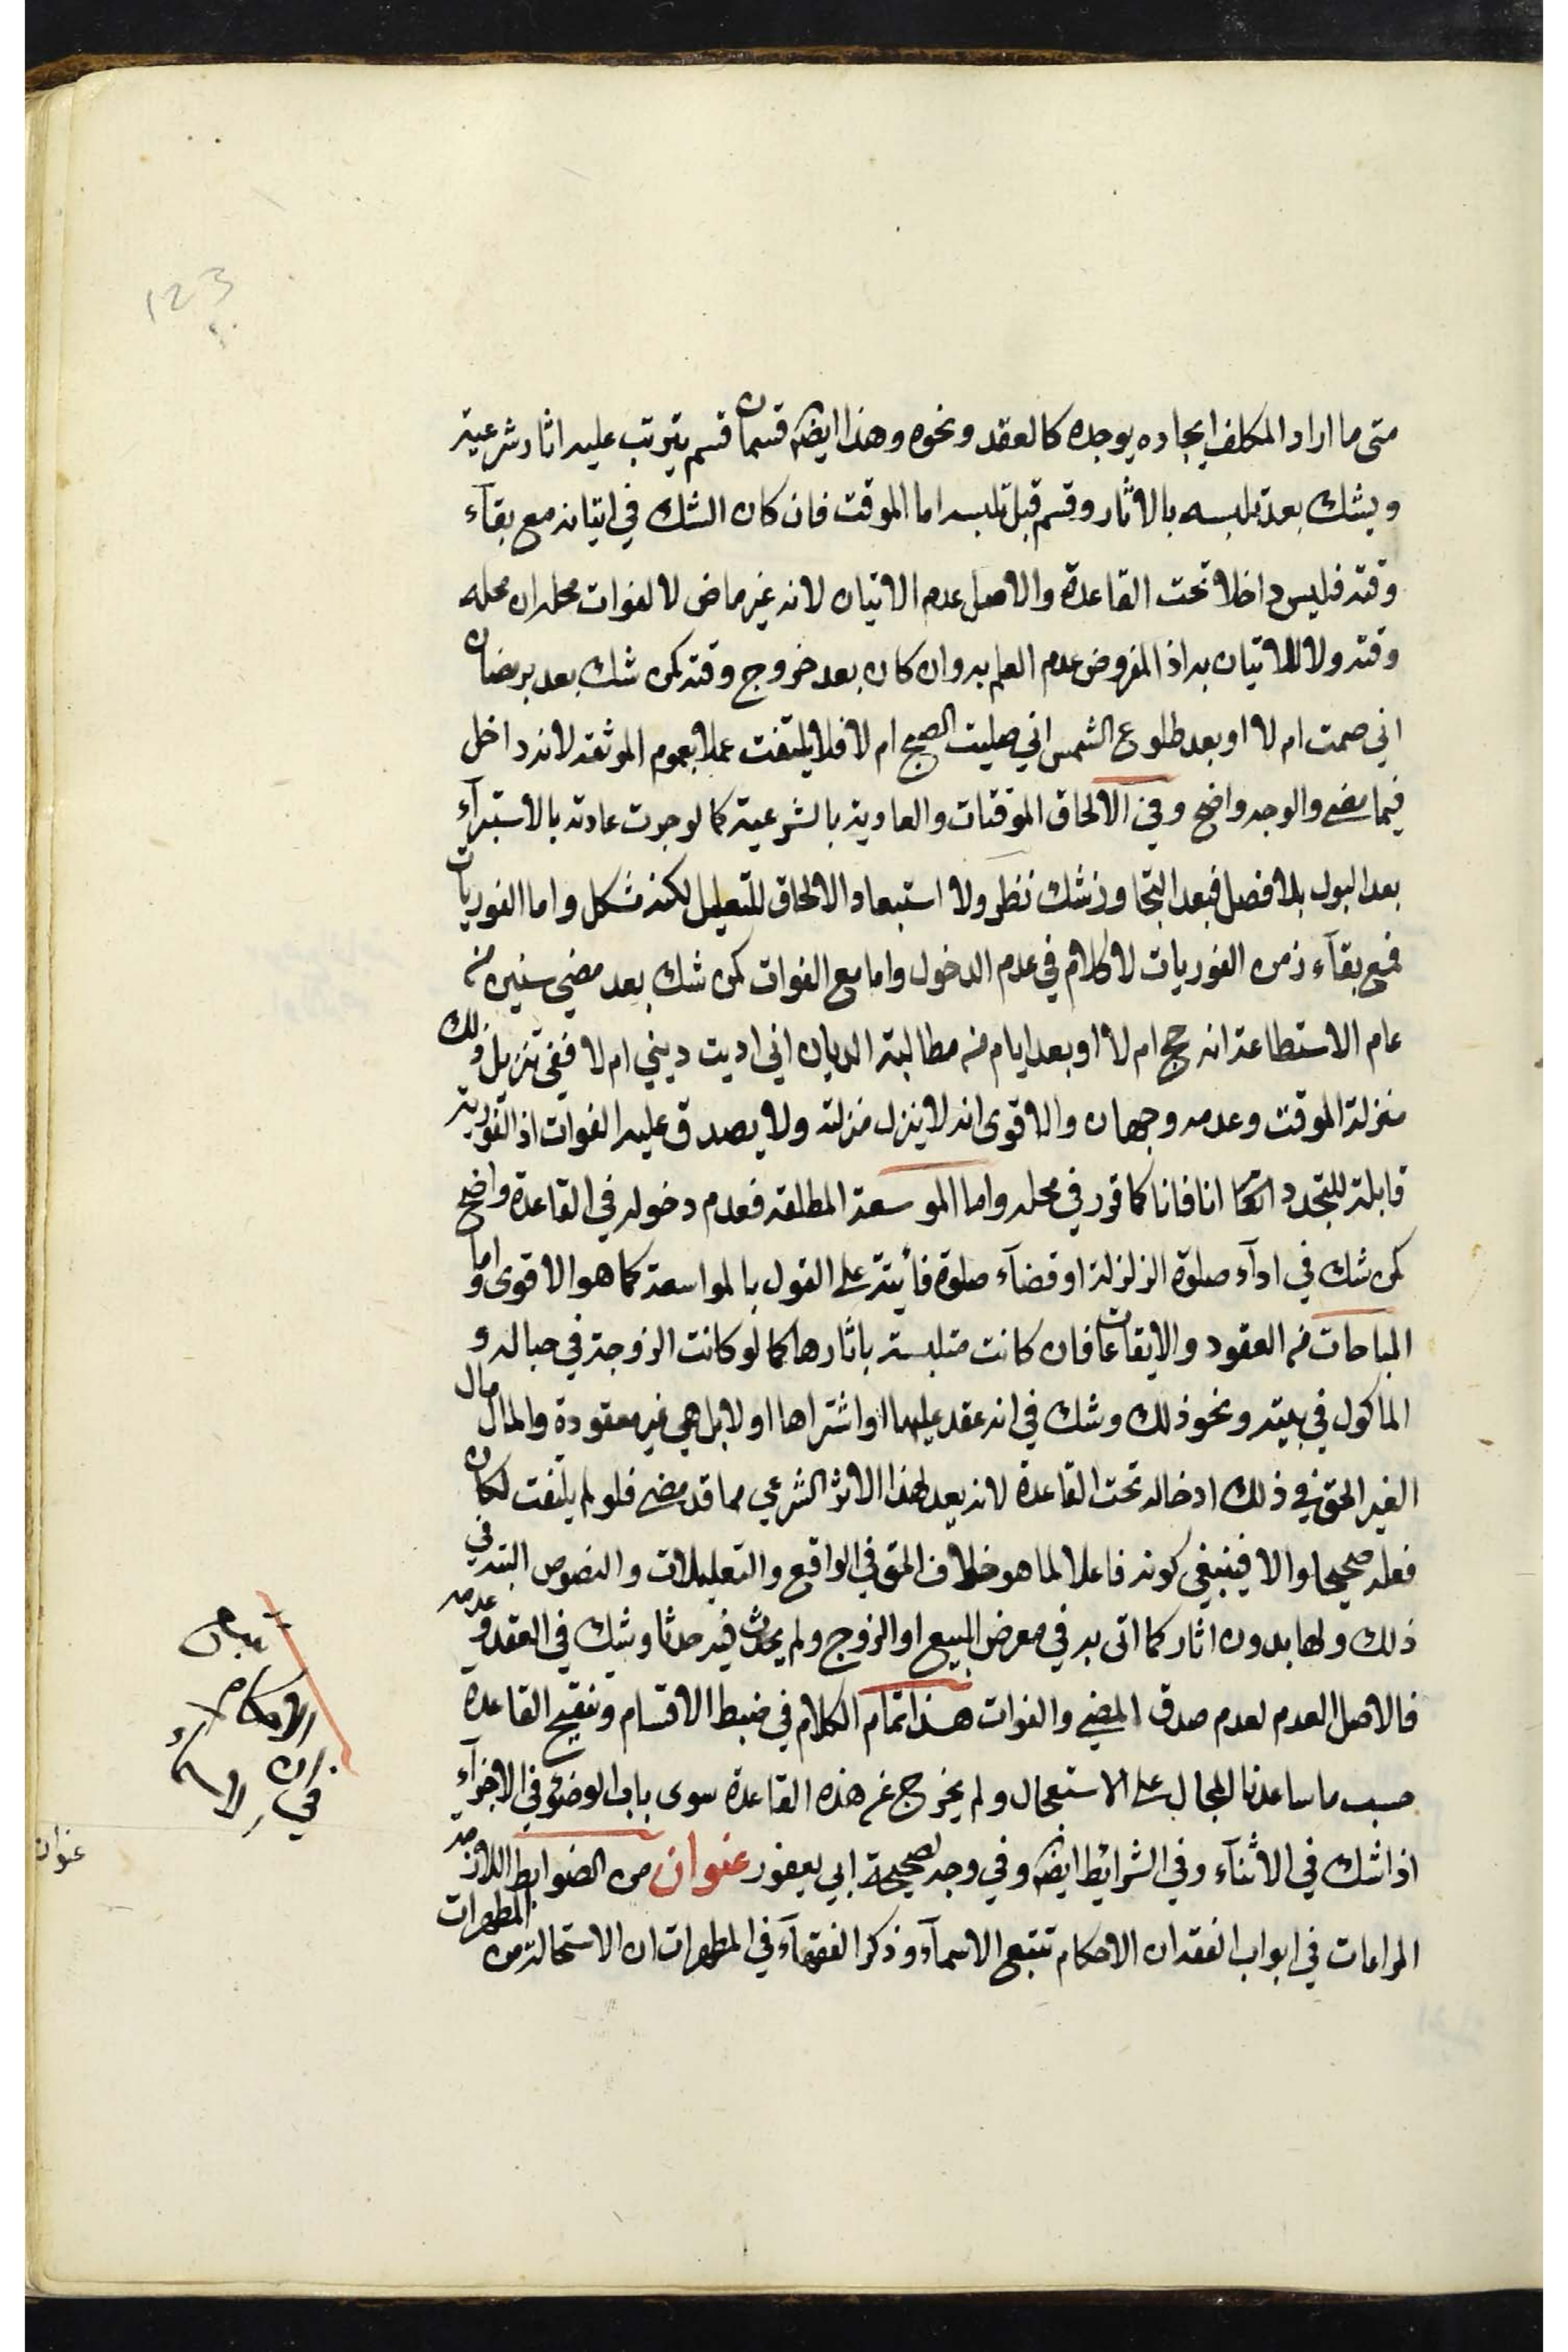 123
متى ما اراد المكلف ايجاده يوجده كالعقد ونحوه وهذا ايضا قسمان قسم يترتب عليه اثار شرعية
ويشك بعد تلبسه بالاثار وقسم قبل تلبسه اما الموقت فان كان الشك في اتيانه مع بقآء
وقته فليس داخلا تحت القاعدة والاصل عدم الاتيان لانه غير ماض لا لفوات محله ان محله
وقته ولا للاتيان به اذ المفروض عدم العلم به وان كان بعد خروج وقته كمن شك بعد رمضان
اني صمت ام لا او بعد طلوع الشمس اني صليت الصبح ام لا فلا يلتفت عملا بعموم الموثقة لانه داخل
فيما مضى والوجه واضح وفي الالحاق الموقتات والعادية بالشرعية كما لو جرت عادته بالاستبرآء
بعد البول بلا فصل فبعد التجاوز شك نظر ولا استبعاد الالحاق للتعليل لكنه مشكل واما الفوريات
فمع بقآء زمن الفوريات لا كلام في عدم الدخول واما مع الفوات كمن شك بعد مضي سنين من
عام الاستطاعة انه حج ام لا او بعد ايام من مطالبة الديان اني اديت ديني ام لا ففي تنزيل ذلك
منزلة الموقت وعدمه وجهان والاقوى انه لا ينزل منزلته ولا يصدق عليه الفوات اذ الفورية
قابلة للتجدد انا فانا كما قرر في محله واما الموسعة المطلقة فعدم دخوله في القاعدة واضح
كمن شك في ادآء صلوة الزلزلة او قضآء صلوة فائتة على القول بالمواسعة كما هو الاقوى واما
المباحات من العقود والايقاعات فان كانت متلبسة باثارها كما لو كانت الزوجة في حباله و
الماكول في بيته ونحو ذلك وشك في انه عقد عليها او اشتراها او لا بل هي غير معقودة والمال مال
الغير الحق في ذلك ادخاله تحت القاعدة لانه بعد لهذا الاثر الشرعي مما قد مضى فلو لم يلتفت لكان
فعله صحيحا والا فينبغي كونه فاعلا لما هو خلاف الحق في الواقع والتعليلات والنصوص البتة في
ذلك ولها بدون اثار كما اتى به في معرض البيع او الزوج ولم يحدث فيه حدثا وشك في العقد وعدمه
فالاصل العدم لعدم صدق المضي والفوات هذا تمام الكلام في ضبط الاقسام وتنقيح القاعدة
حسب ما ساعدنا المجال على الاستعجال ولم يخرج عن هذه القاعدة سوى باب الوضوء في الاجزآء
اذا شك في الاثنآء وفي الشرائط ايضا وفي وجه لصحيحة ابي يعفور عنوان من الضوابط اللازمة
المراعات في ابواب الفقه ان الاحكام تتبع الاسمآء وذكر الفقهآء في المطهرات ان الاستحالة من المطهرات
في ان
الاحكام
عنوان